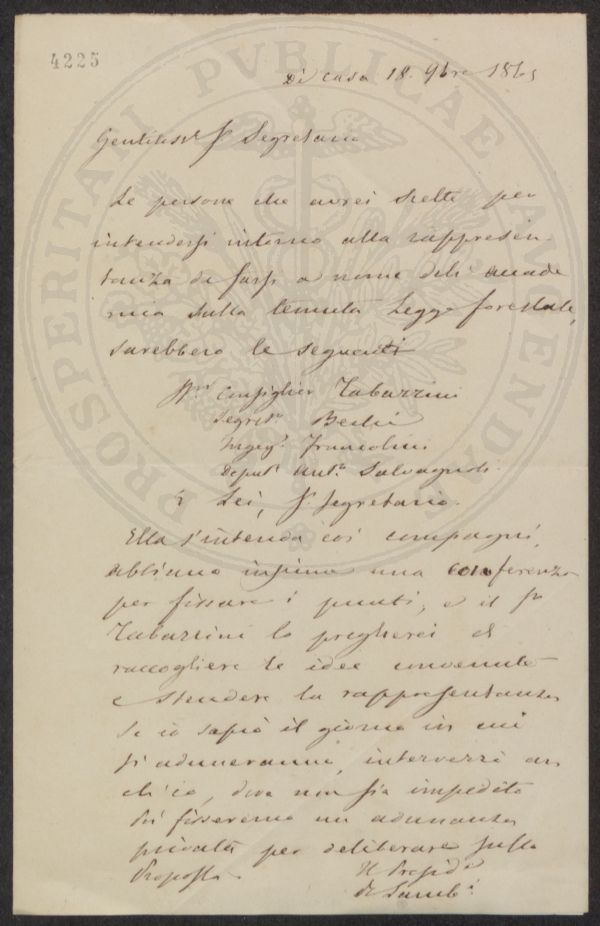 4225
Di casa 18. 9bre 186
Gentiliss.º Sr Segretario
Le persone che avrei scelte per
intendersi intorno alla rappresen-
tanza da farsi a nome dell' accade
mia sulla temuta Legge forestale,
sarebbero le seguenti
Sri Consiglier Tabarrini
Segret.º
Ingeg.e Francolini
Deput.º Ant.º Salvagnoli
E Lei, Sr Segretario.
Ella s'intenda coi compagni,
abbiano insieme una conferenza
per fissare i punti, e il Sr
Tabarrini lo pregherei di
raccogliere le idee convenute
e stendere la rappresentanza
Se io saprò il giorno in cui
si aduneranno, interverrò an
ch'io, dove non sia impedito
Poi fisseremo un adunanza
privata per deliberare sulla
Proposta.
Il Presid.e
R Lamb.i
PROSPERITATI PVBLICAE AVGENDAE